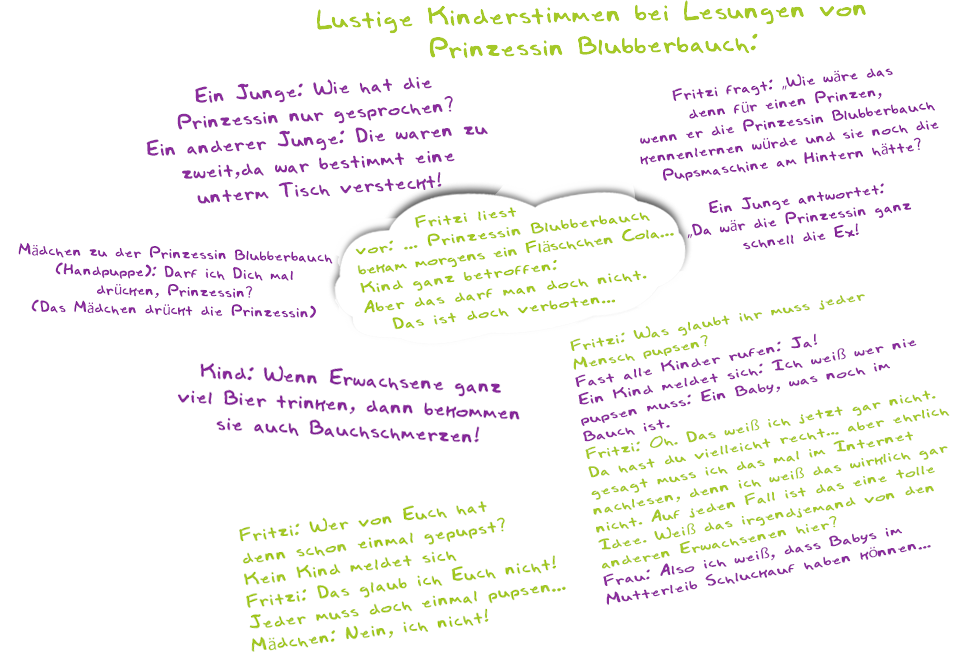 Lustige Kinderstimmen bei Lesungen von
Prinzessin Blubberbauch:
Ein Junge: Wie hat die
Prinzessin nur gesprochen?
Ein anderer Junge: Die waren zu
zweit,da war bestimmt eine
unterm Tisch versteckt!
Fritzi fragt: „Wie wäre das
denn für einen Prinzen,
wenn er die Prinzessin Blubberbauch
kennenlernen würde und sie noch die
Pupsmaschine am Hintern hätte?
Ein Junge antwortet:
„Da wär die Prinzessin ganz
schnell die Ex!
Fritzi liest
vor: ... Prinzessin Blubberbauch
bekam morgens ein Fläschchen Cola...
Kind ganz betroffen:
Aber das darf man doch nicht.
Das ist doch verboten...
Mädchen zu der Prinzessin Blubberbauch
(Handpuppe): Darf ich Dich mal
drücken, Prinzessin?
(Das Mädchen drückt die Prinzessin)
Kind: Wenn Erwachsene ganz
viel Bier trinken, dann bekommen
sie auch Bauchschmerzen!
Fritzi: Was glaubt ihr muss jeder
Mensch pupsen?
Fast alle Kinder rufen: Ja!
Ein Kind meldet sich: Ich weiß wer nie
pupsen muss: Ein Baby, was noch im
Bauch ist.
Fritzi: Oh. Das weiß ich jetzt gar nicht.
Da hast du vielleicht recht... aber ehrlich
gesagt muss ich das mal im Internet
nachlesen, denn ich weiß das wirklich gar
nicht. Auf jeden Fall ist das eine tolle
Idee. Weiß das irgendjemand von den
anderen Erwachsenen hier?
Frau: Also ich weiß, dass Babys im
Mutterleib Schluckauf haben können...
Fritzi: Wer von Euch hat
denn schon einmal gepupst?
Kein Kind meldet sich
Fritzi: Das glaub ich Euch nicht!
Jeder muss doch einmal pupsen...
Mädchen: Nein, ich nicht!